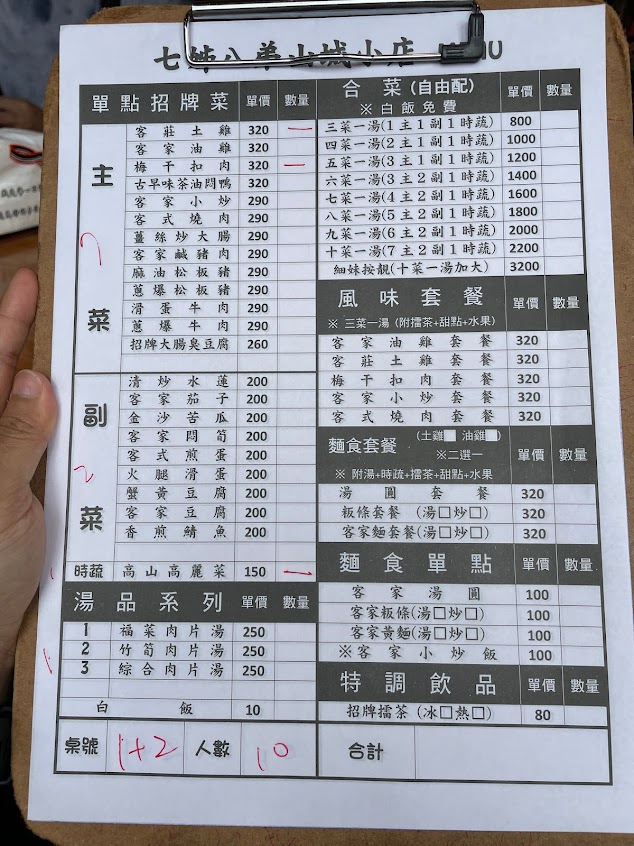 七姊八弟山城小店
單點招牌菜 單價 數量
主菜
客莊土雞 320 一
客家油雞 320
梅干扣肉 320 一
古早味茶油悶鴨 320
客家小炒 290
客式燒肉 290
薑絲炒大腸 290
客家鹹豬肉 290
麻油松板豬 290
蔥爆松板豬 290
滑蛋牛肉 290
蔥爆牛肉 290
招牌大腸臭豆腐 260
副菜
2
清炒水蓮 200
客家茄子 200
金沙苦瓜 200
客家悶筍 200
客式煎蛋 200
火腿滑蛋 200
蟹黃豆腐 200
客家豆腐 200
香煎鯖魚 200
時蔬 高山高麗菜 150 一
湯品系列 單價 數量
1 福菜肉片湯 250
2 竹筍肉片湯 250
3 綜合肉片湯 250
白飯 10
桌號 1+2 人數 10
合菜(自由配) 單價 數量
※白飯免費
三菜一湯(1主1副1時蔬) 800
四菜一湯(2主1副1時蔬) 1000
五菜一湯(3主1副1時蔬) 1200
六菜一湯(3主2副1時蔬) 1400
七菜一湯(4主2副1時蔬) 1600
八菜一湯(5主2副1時蔬) 1800
九菜一湯(6主2副1時蔬) 2000
十菜一湯(7主2副1時蔬) 2200
細妹按靚(十菜一湯加大) 3200
風味套餐 單價 數量
※ 三菜一湯 (附擂茶+甜點+水果)
客家油雞套餐 320
客莊土雞套餐 320
梅干扣肉套餐 320
客家小炒套餐 320
客式燒肉套餐 320
麵食套餐 (土雞□ 油雞□) 單價 數量
※二選一
※ 附湯+時蔬+擂茶+甜點+水果
湯圓套餐 320
粄條套餐 (湯□炒□) 320
客家麵套餐(湯□炒□) 320
麵食單點 單價 數量
客家湯圓 100
客家粄條(湯□炒□) 100
客家黃麵(湯□炒□) 100
※客家小炒飯 100
特調飲品 單價 數量
招牌擂茶 (冰□熱□) 80
合計